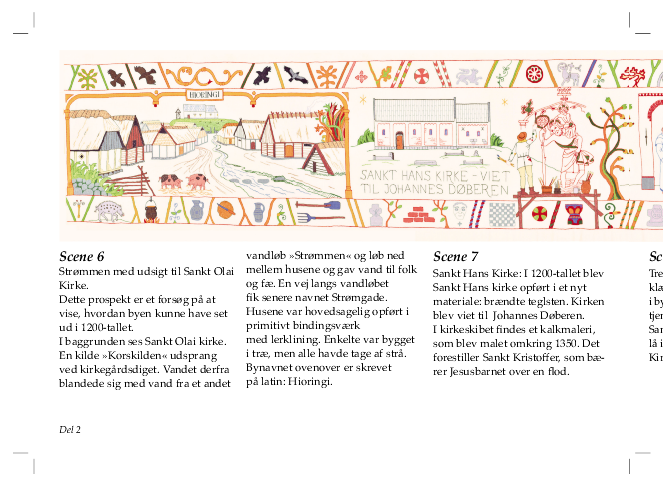 HIORINGI
SANKT HANS KIRKE - VIET
TIL JOHANNES DØBEREN
Scene 6
Strømmen med udsigt til Sankt Olai
Kirke.
Dette prospekt er et forsøg på at
vise, hvordan byen kunne have set
ud i 1200-tallet.
I baggrunden ses Sankt Olai kirke.
En kilde »Korskilden« udsprang
ved kirkegårdsdiget. Vandet derfra
blandede sig med vand fra et andet
vandløb »Strømmen« og løb ned
mellem husene og gav vand til folk
og fæ. En vej langs vandløbet
fik senere navnet Strømgade.
Husene var hovedsagelig opført i
primitivt bindingsværk
med lerklining. Enkelte var bygget
i træ, men alle havde tage af strå.
Bynavnet ovenover er skrevet
på latin: Hioringi.
Scene 7
Sankt Hans Kirke: I 1200-tallet blev
Sankt Hans kirke opført i et nyt
materiale: brændte teglsten. Kirken
blev viet til Johannes Døberen.
I kirkeskibet findes et kalkmaleri,
som blev malet omkring 1350. Det
forestiller Sankt Kristoffer, som bæ-
rer Jesusbarnet over en flod.
Sc
Tre
klæ
i by
tjer
San
lå i
Kir
Del 2